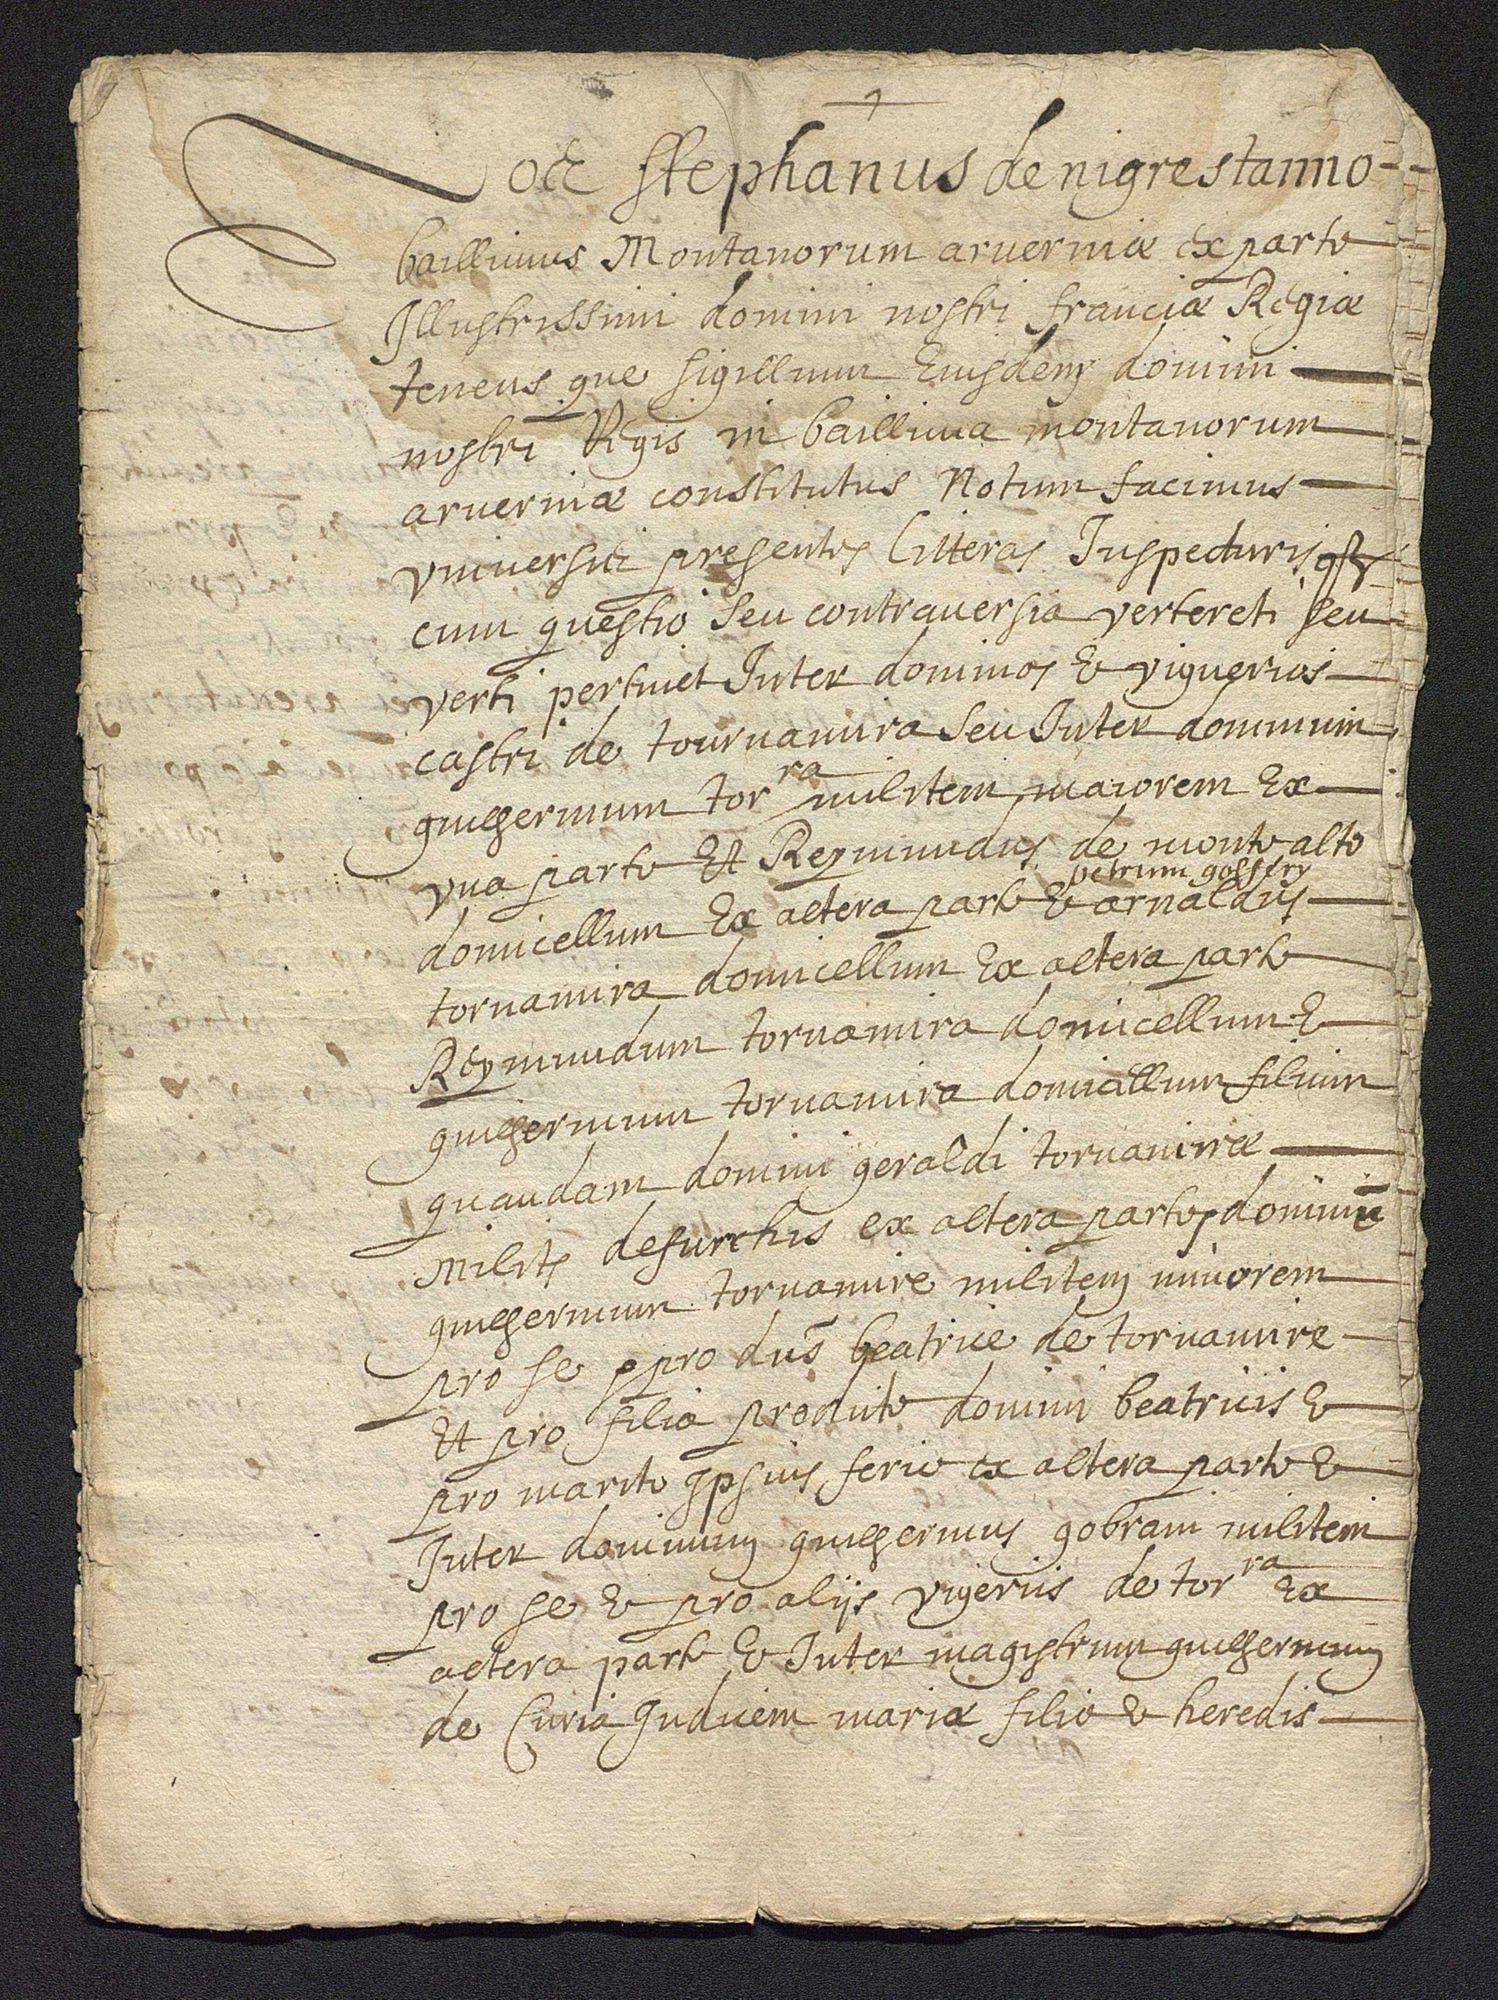 Noe Stephanus de nigrestanno
baillivus Montanorum arverniæ ex parte
Illustrissimi domini nostri franciæ Regiæ
tenens que sigillum Eiusdem domini
nostri Regis in bailliva montanorum
arverniæ constitutus Notum facimus
vniversis presentes litteras Inspecturis qƺ
cum questio seu contraversia verteret seu
verti pertinet Inter dominos & viguerios
castri de tournamira seu Inter dominum
guilhermum torra militem maiorem Ex
vna parte Et Reymundus de monte alto
petrum goffery
domicellum Ex altera parte & arnaldus
tornamira domicellum Ex altera parte
Reymundum tornamira domicellum &
guilhermum tornamira domicellum filium
quandam domini geraldi tornamiræ
Militis defurchis ex altera parte dominū
guilhermum tornamire militem minorem
pro se & pro dus beatrice de tornamire
Et pro filia predicte domini beatricis &
pro marito Ipsius ferie ex altera parte &
Inter dominum guilhermus gobram militem
pro se & pro alijs vigeriis de torra Ex
altera parte & Inter magistrum guilhermum
de Curia Judicem mariæ filie & heredis